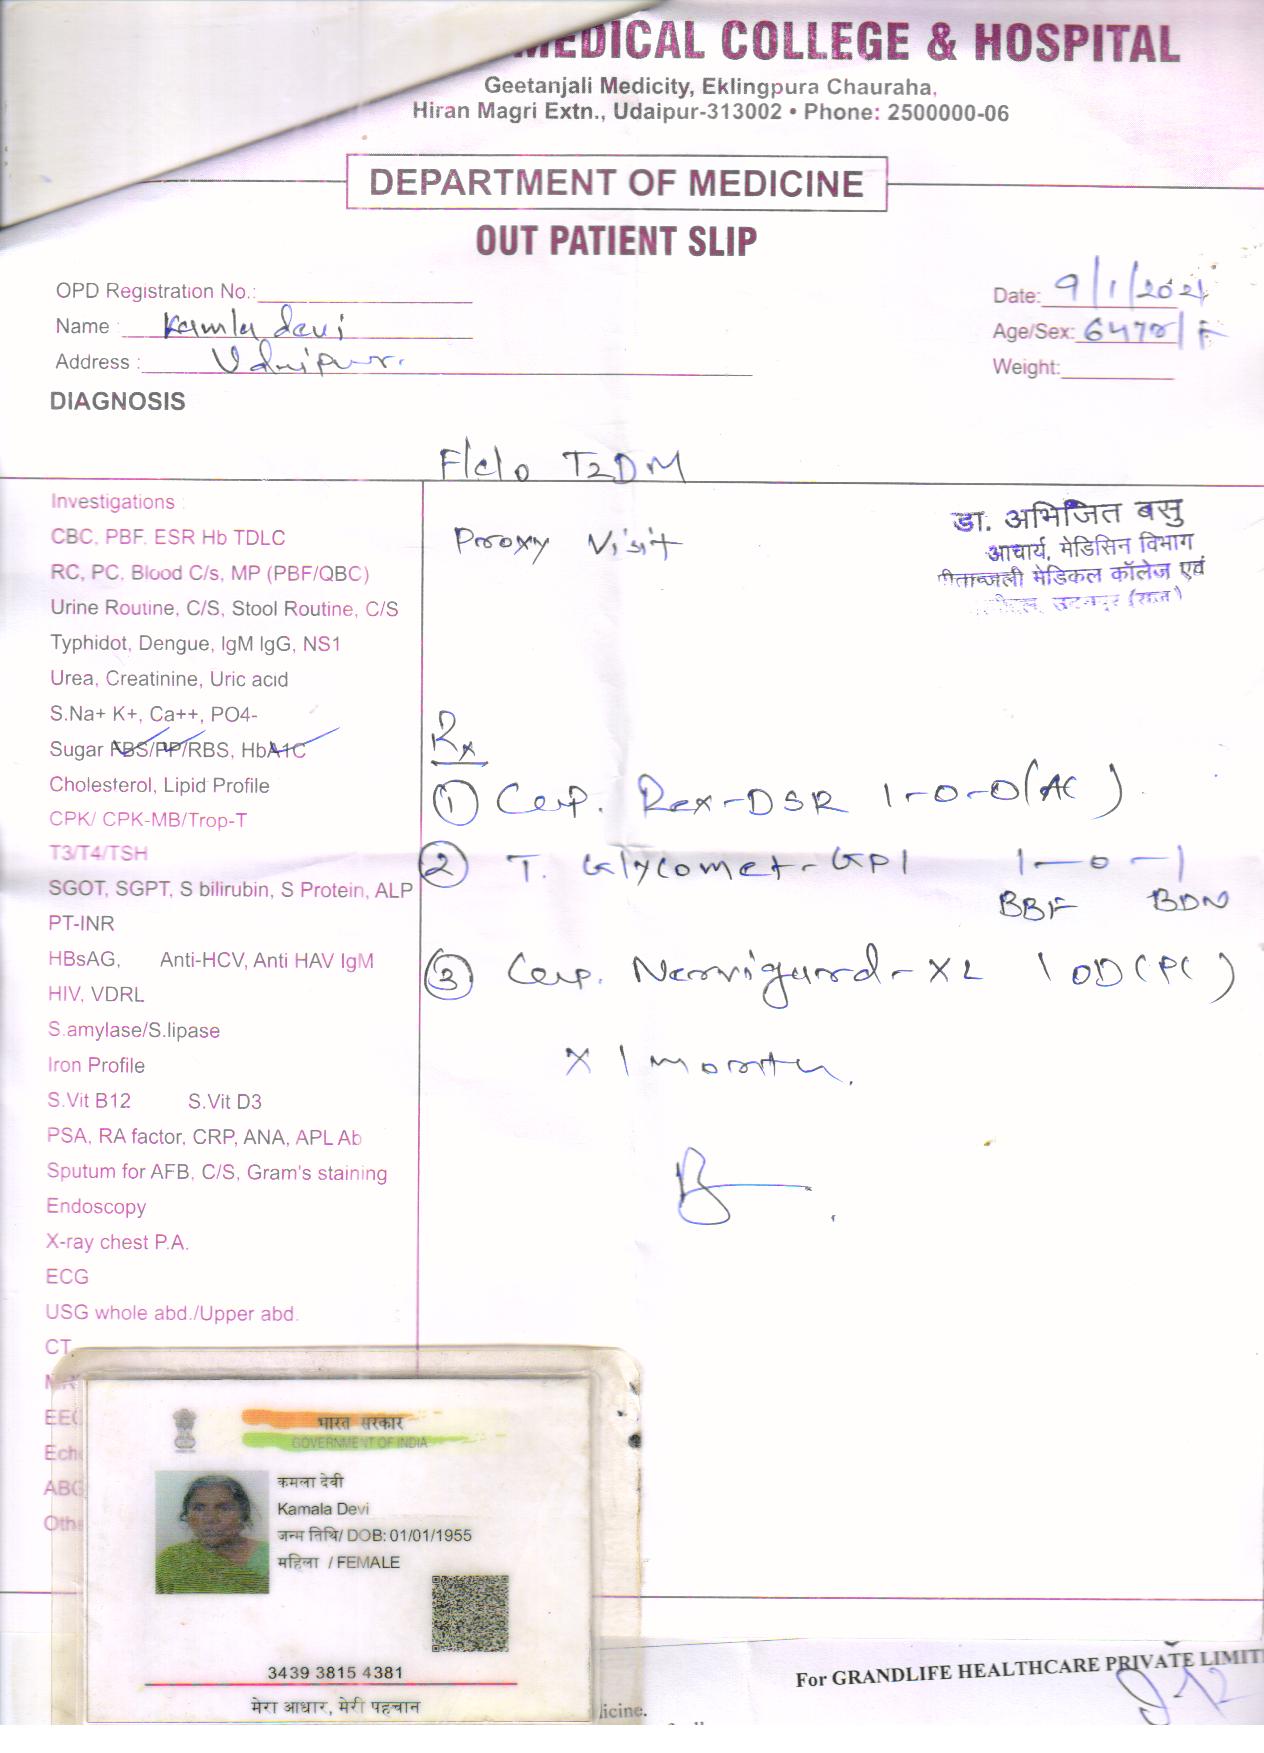 MEDICAL COLLEGE & HOSPITAL
Geetanjali Medicity, Eklingpura Chauraha,
Hiran Magri Extn., Udaipur-313002 • Phone: 2500000-06
DEPARTMENT OF MEDICINE
OUT PATIENT SLIP
OPD Registration No.:
Date: 9/1/2021
Name : Kamla devi
Age/Sex: 64yr/F
Address : Udaipur.
Weight:
DIAGNOSIS
F/c/o T2DM
Investigations
CBC, PBF, ESR Hb TDLC
RC, PC, Blood C/s, MP (PBF/QBC)
Urine Routine, C/S, Stool Routine, C/S
Typhidot, Dengue, IgM IgG, NS1
Urea, Creatinine, Uric acid
S.Na+ K+, Ca++, PO4-
Sugar FBS/PP/RBS, HbA1C
Cholesterol, Lipid Profile
CPK/ CPK-MB/Trop-T
T3/T4/TSH
SGOT, SGPT, S bilirubin, S Protein, ALP
PT-INR
HBsAG, Anti-HCV, Anti HAV IgM
HIV, VDRL
S.amylase/S.lipase
Iron Profile
S.Vit B12 S.Vit D3
PSA, RA factor, CRP, ANA, APL Ab
Sputum for AFB, C/S, Gram's staining
Endoscopy
X-ray chest P.A.
ECG
USG whole abd./Upper abd.
CT
EEG
Echo
ABG
Proxy Visit
डा. अभिजित बसु
आचार्य, मेडिसिन विभाग
गीतान्जली मेडिकल कॉलेज एवं
उदयपुर (राज)
Rx
① Cap. Rex-DSR 1-0-0 (AC)
② T. Glycomet-GP1 1-0-1
BBF BDN
③ Cap. Nervigard-XL 1 OD (PC)
X 1 month.
भारत सरकार
GOVERNMENT OF INDIA
कमला देवी
Kamala Devi
जन्म तिथि/ DOB: 01/01/1955
महिला / FEMALE
3439 3815 4381
मेरा आधार, मेरी पहचान
For GRANDLIFE HEALTHCARE PRIVATE LIMIT
licine.